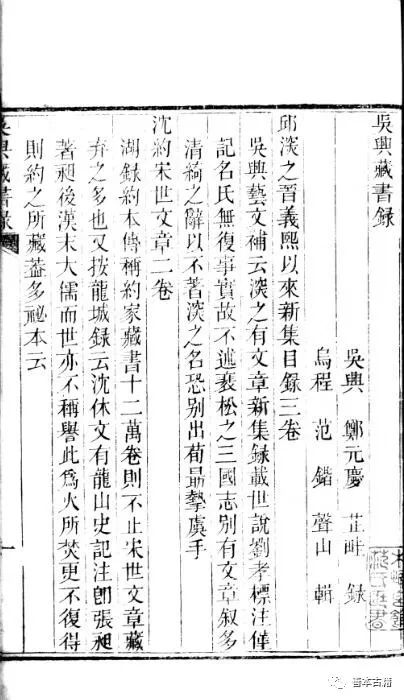 吳興藏書録
吳興 鄭元慶 芷畔 録
烏程 范鍇 聲山 輯
邱淵之晉義熙以來新集目録三卷
吳興藝文補云淵之有文章新集録載世說劉孝標注僅
記名氏無復事實故不述裴松之三國志別有文章叙多
清綺之辭以不著淵之名恐别出荀朂摯虞手
沈約宋世文章二卷
湖録約本傳稱約家藏書十二萬卷則不止宋世文章藏
弆之多也又按龍城録云沈休文有龍山史記注卽張昶
著昶後漢末大儒而世亦不稱譽此爲火所焚更不復得
則約之所藏葢多祕本云
吳興藏書録
一
善本古籍